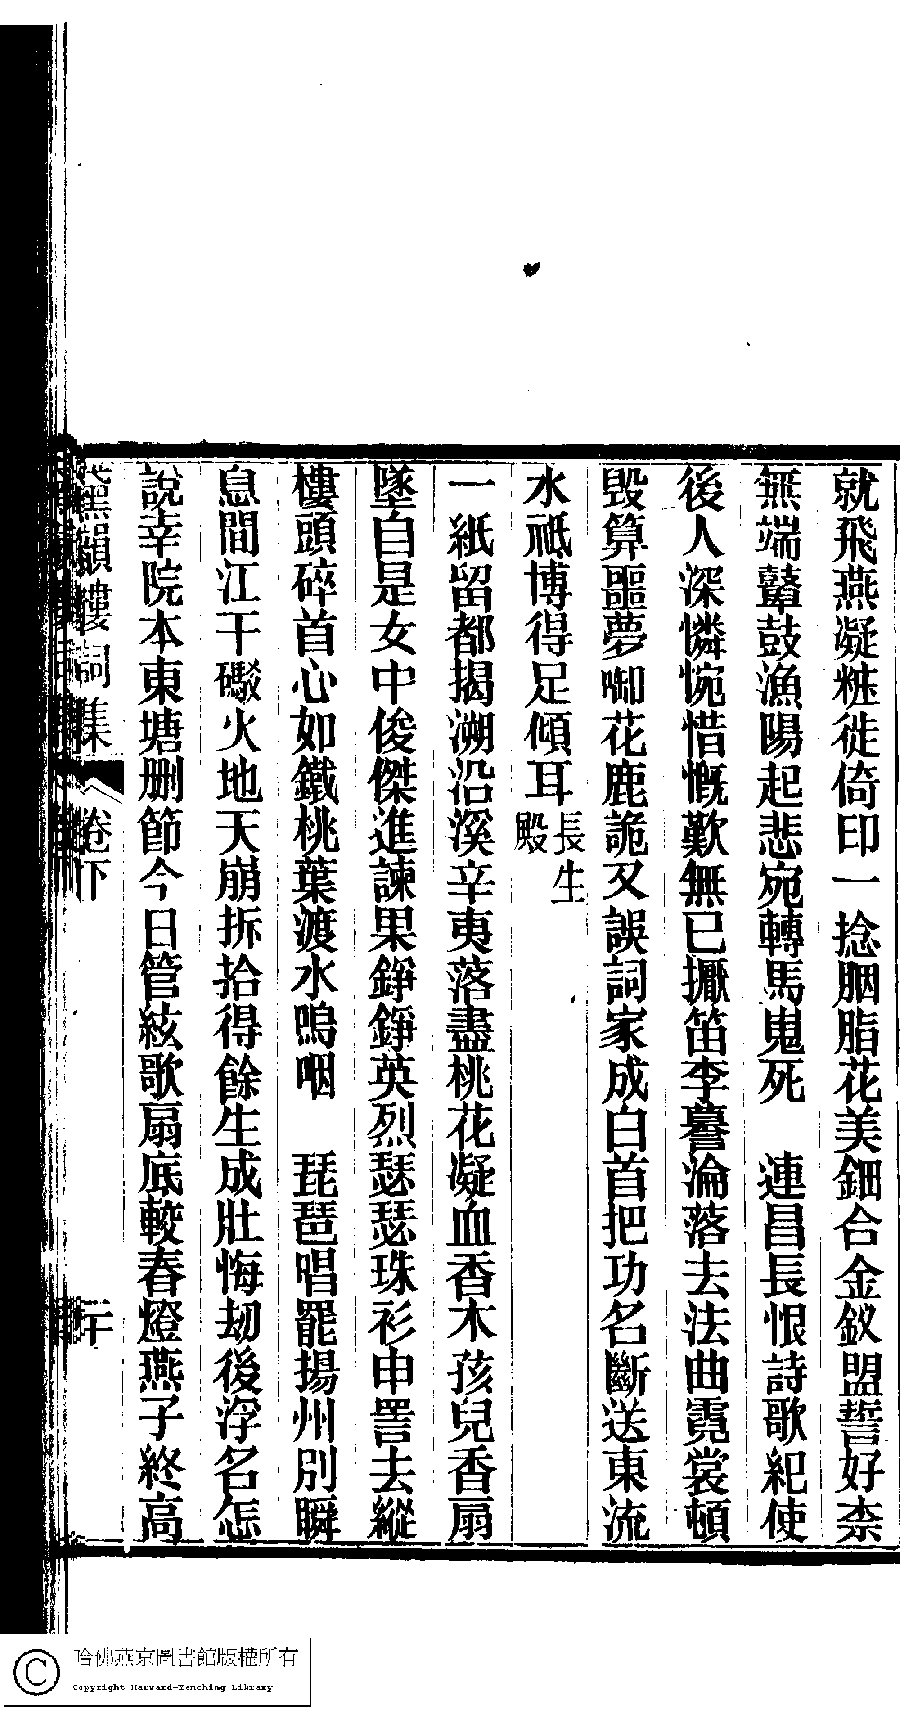 就飛燕凝粧徙倚印一捻胭脂花美鈿合金釵盟誓好柰
無端鼙鼓漁陽起悲宛轉馬嵬死　連昌長恨詩歌紀使
後人深憐惋惜慨歎無已擫笛李謩淪落去法曲霓裳頓
毀算噩夢啣花鹿詭又誤詞家成白首把功名斷送東流
水祗博得足傾耳長生殿
一紙留都揭溯沿溪辛夷落盡桃花凝血香木孩兒香扇
墜自是女中俊傑進諫果錚錚英烈瑟瑟珠衫申詈去縱
樓頭碎首心如鐵桃葉渡水嗚咽　琵琶唱罷揚州別瞬
息間江干礮火地天崩拆拾得餘生成壯悔劫後浮名怎
說幸院本東塘刪節今日管絃歌扇底較春燈燕子終高
黛韻樓詞集　卷下　二十
哈佛燕京圖書館版權所有
Copyright Harvard-Yenching Library